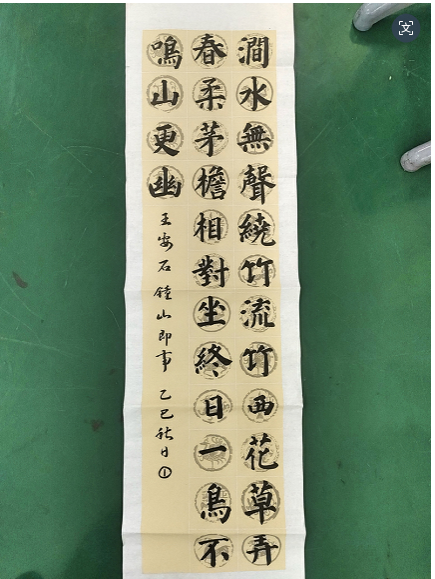 澗水無聲繞竹流竹西花草弄
春柔茅檐相對坐終日一鳥不
鳴山更幽
王安石鐘山即事 乙巳秋日①